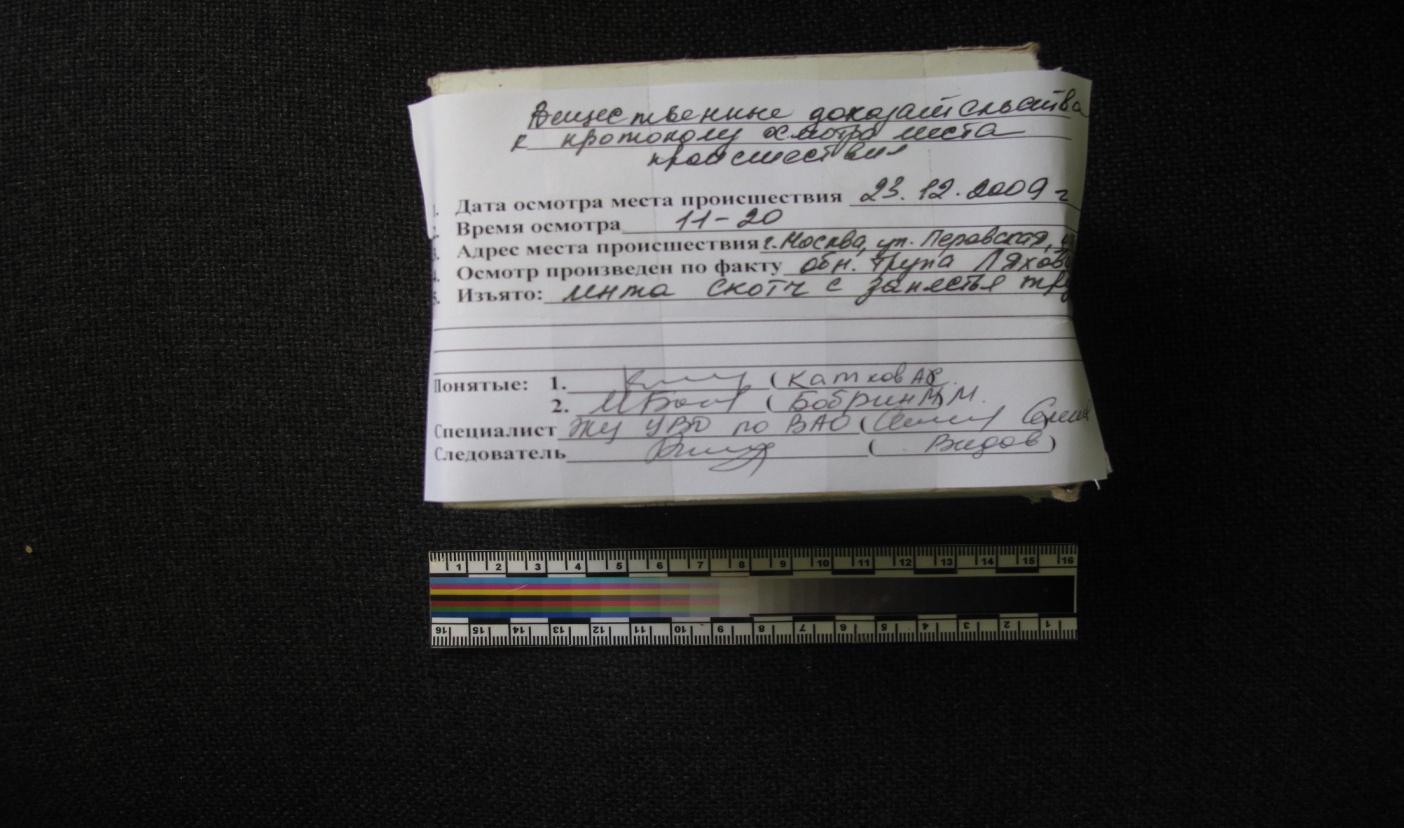 Вещественные доказательства
к протоколу осмотра места
происшествия
Дата осмотра места происшествия 23.12.2009 г
Время осмотра 11-20
Адрес места происшествия г. Москва, ул. Перовская,
Осмотр произведен по факту обн. трупа Ляхов
5. Изъято: лента скотч с запястья тру
Понятые: 1. (Катков АВ.
2. (Бобрин М.М.
Специалист ЭКЦ УВД по ВАО (
Следователь ( Видов )
1 2 3 4 5 6 7 8 9 10 11 12 13 14 15 16
16 15 14 13 12 11 10 9 8 7 6 5 4 3 2 1